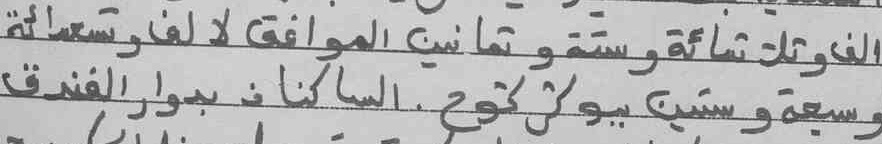 الف وتلت تمائة وستة و تمانين الموافق لا لف و تسعمائة
وسبعة و ستين ببوكركوح . الساكنان بدوار الفندق